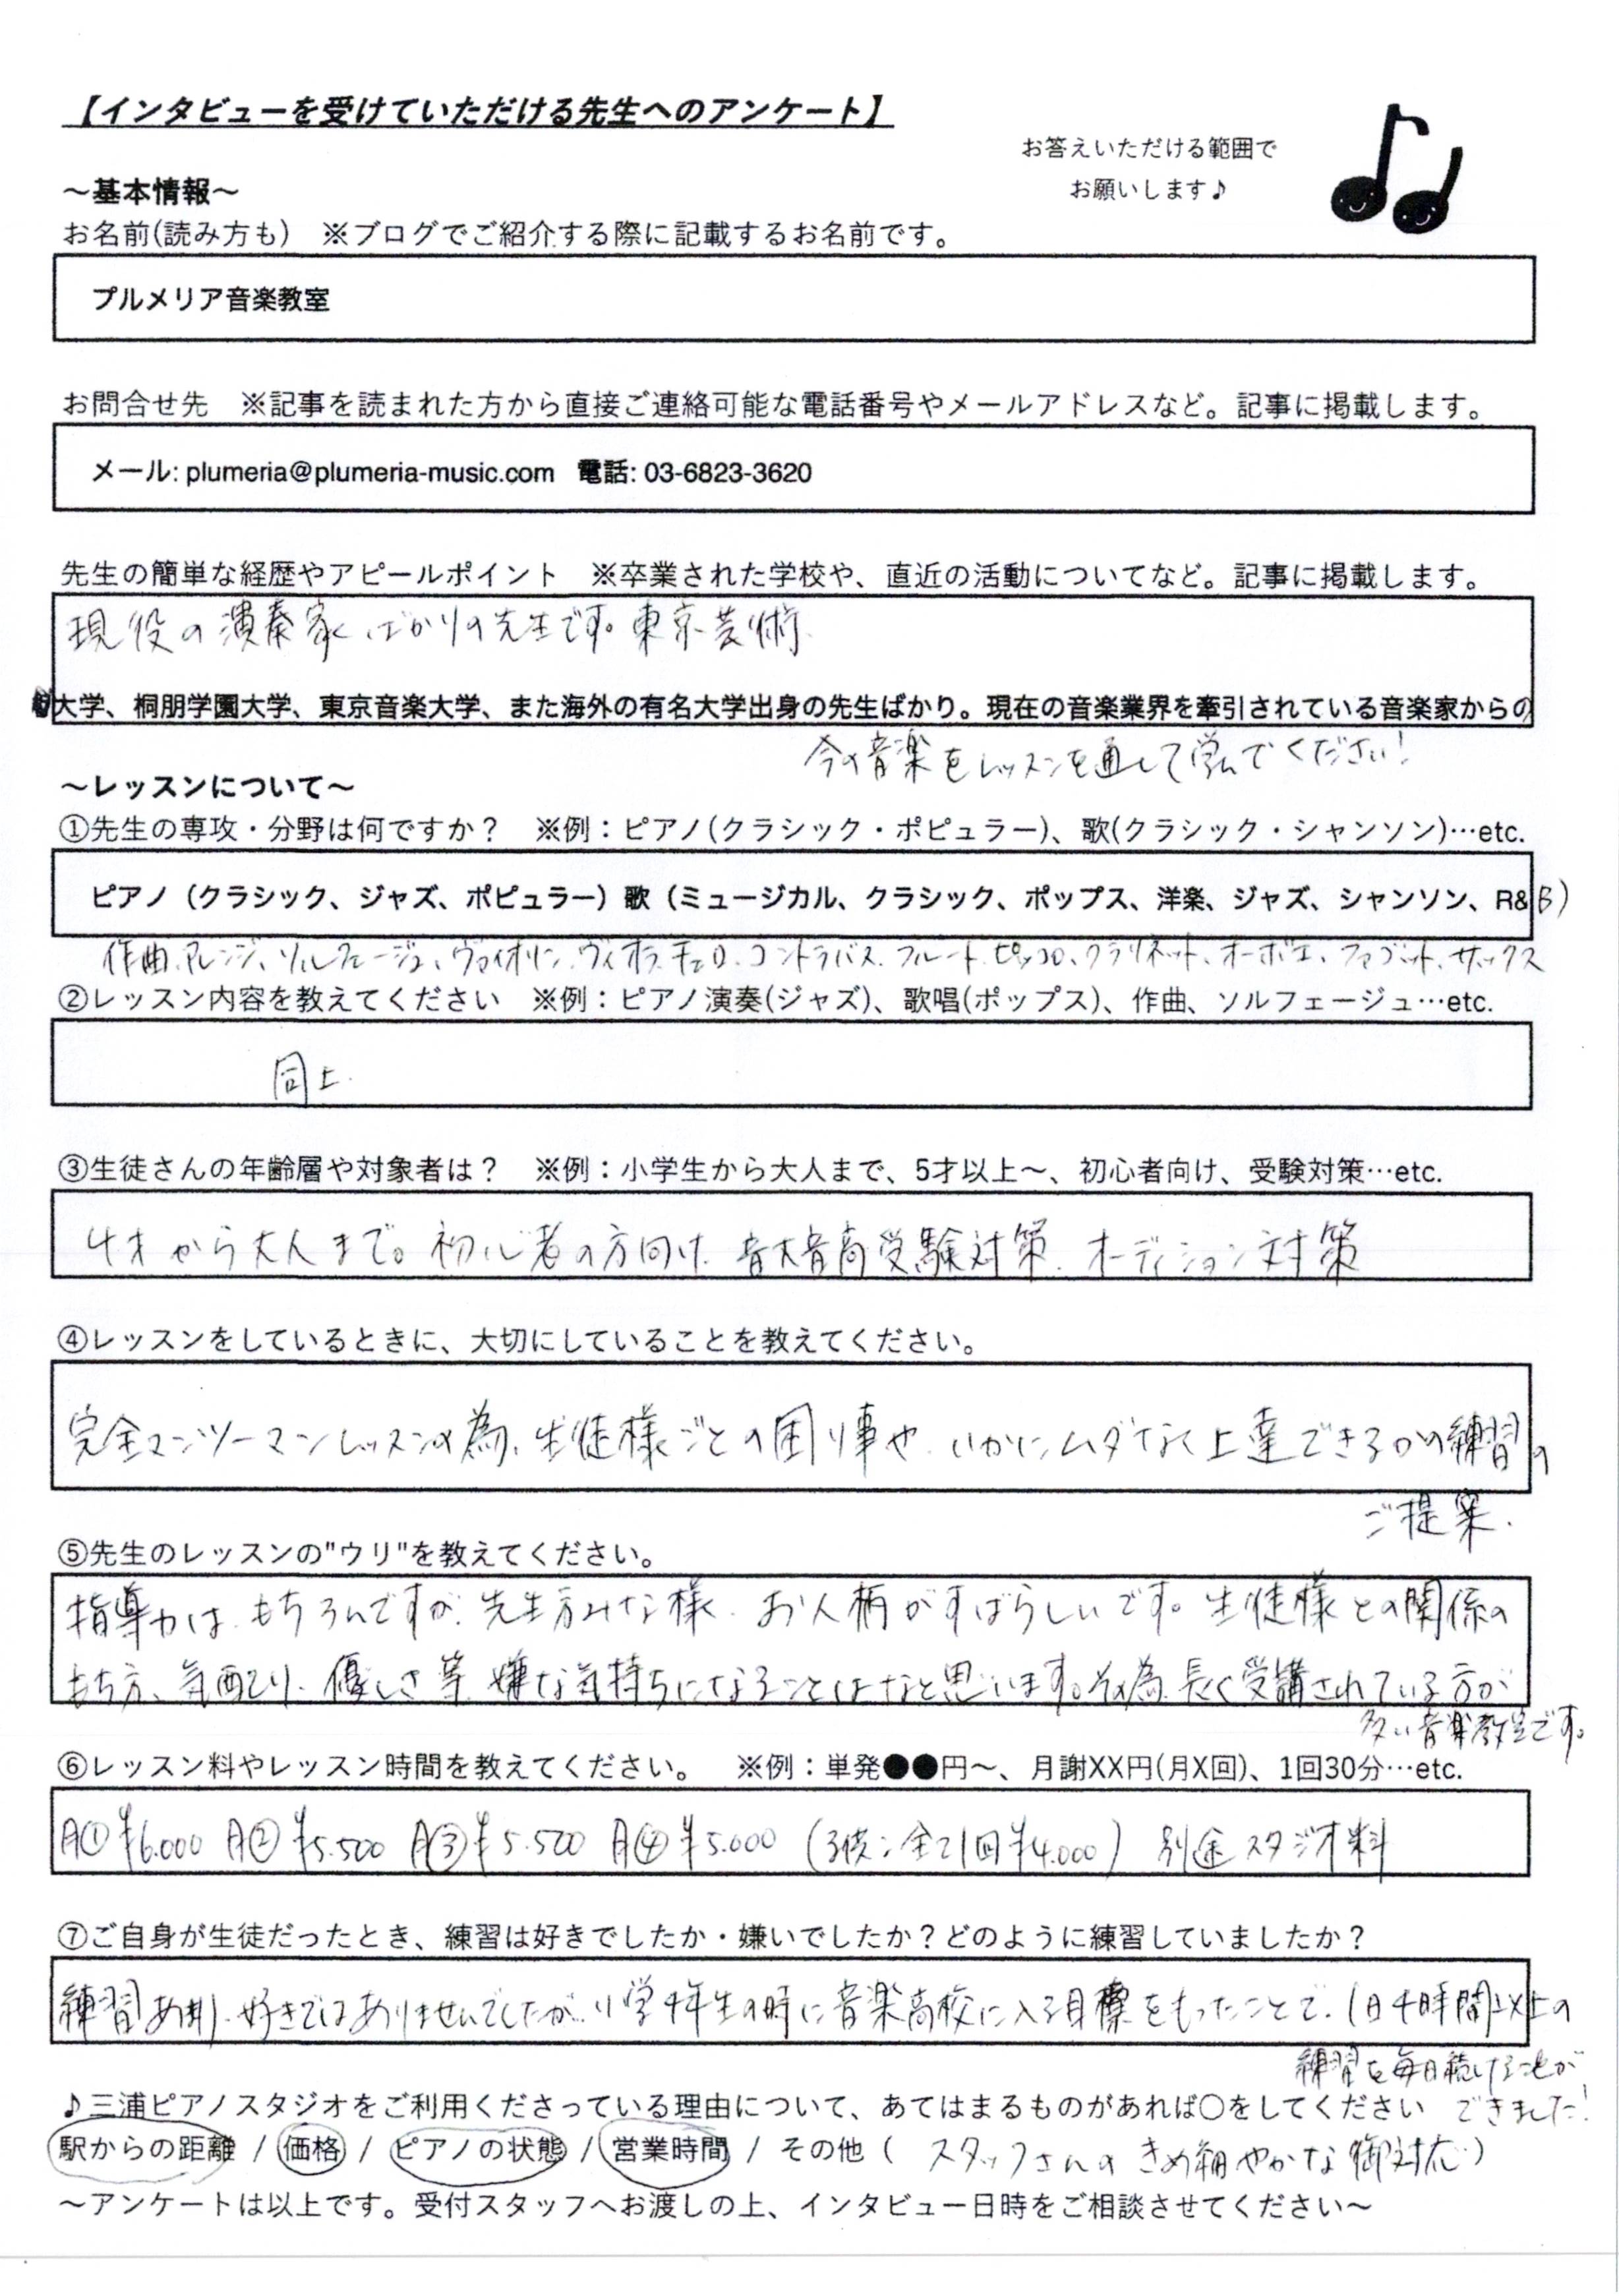 【インタビューを受けていただける先生へのアンケート】
お答えいただける範囲で
お願いします♪
～基本情報～
お名前(読み方も)　※ブログでご紹介する際に記載するお名前です。
プルメリア音楽教室
お問合せ先　※記事を読まれた方から直接ご連絡可能な電話番号やメールアドレスなど。記事に掲載します。
メール: plumeria@plumeria-music.com 電話: 03-6823-3620
先生の簡単な経歴やアピールポイント　※卒業された学校や、直近の活動についてなど。記事に掲載します。
現役の演奏家ばかりの先生です。東京芸術
大学、桐朋学園大学、東京音楽大学、また海外の有名大学出身の先生ばかり。現在の音楽業界を牽引されている音楽家からの
今の音楽をレッスンを通して学んでください!
～レッスンについて～
①先生の専攻・分野は何ですか？　※例：ピアノ(クラシック・ポピュラー)、歌(クラシック・シャンソン)…etc.
ピアノ（クラシック、ジャズ、ポピュラー）歌（ミュージカル、クラシック、ポップス、洋楽、ジャズ、シャンソン、R&B)
作曲、アレンジ、ソルフェージュ、ヴァイオリン、ヴィオラ、チェロ、コントラバス、フルート、ピッコロ、クラリネット、オーボエ、ファゴット、サックス
②レッスン内容を教えてください　※例：ピアノ演奏(ジャズ)、歌唱(ポップス)、作曲、ソルフェージュ…etc.
同上.
③生徒さんの年齢層や対象者は？　※例：小学生から大人まで、5才以上～、初心者向け、受験対策…etc.
4才から大人まで。初心者の方向け、音大音高受験対策、オーディション対策
④レッスンをしているときに、大切にしていることを教えてください。
完全マンツーマンレッスンの為、生徒様ごとの困り事や、いかにムダなく上達できるかの練習の
ご提案.
⑤先生のレッスンの"ウリ"を教えてください。
指導力は、もちろんですが、先生方みな様、お人柄がすばらしいです。生徒様との関係の
もち方、気配り、優しさ等、嫌な気持ちになることはなと思います。その為、長く受講されている方が
多い音楽教室です。
⑥レッスン料やレッスン時間を教えてください。　※例：単発●●円～、月謝XX円(月X回)、1回30分…etc.
月① ¥6.000 月② ¥5.500 月③ ¥5.500 月④ ¥5.000 (子供：全て1回¥4.000) 別途スタジオ料
⑦ご自身が生徒だったとき、練習は好きでしたか・嫌いでしたか？どのように練習していましたか？
練習あまり、好きではありませんでしたが、小学4年生の時に音楽高校に入る目標をもったことで、1日4時間以上の
練習を毎日続けることが
できました!
♪三浦ピアノスタジオをご利用くださっている理由について、あてはまるものがあれば○をしてください
駅からの距離 / 価格 / ピアノの状態 / 営業時間 / その他 ( スタッフさんのきめ細やかな御対応 )
～アンケートは以上です。受付スタッフへお渡しの上、インタビュー日時をご相談させてください～